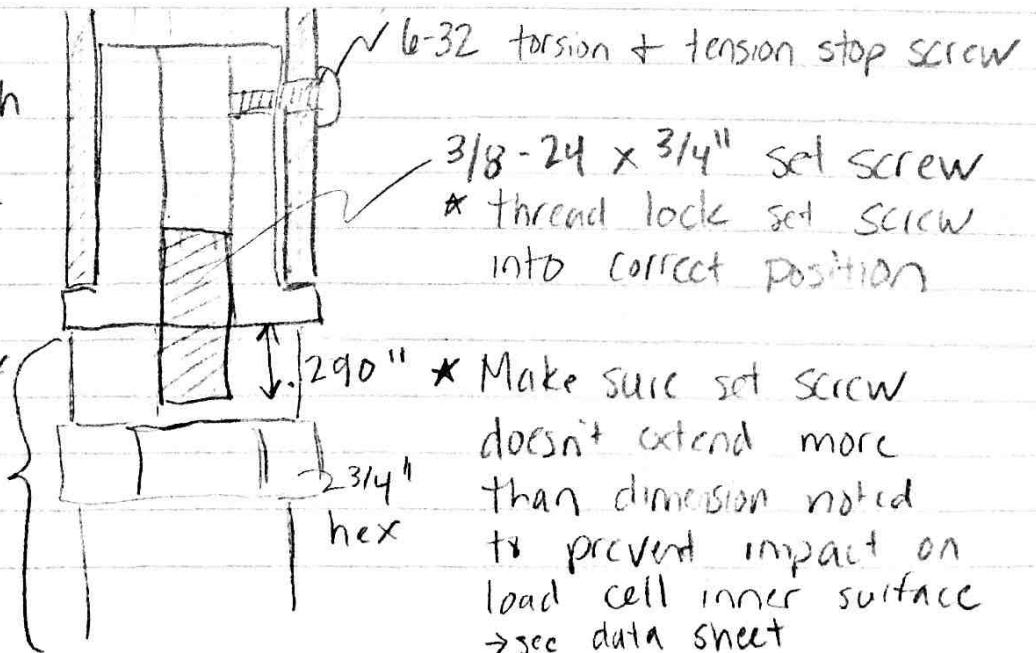 6-32 torsion & tension stop screw
3/8-24 x 3/4" set screw
* thread lock set screw
into correct position
.290" * Make sure set screw
doesn't extend more
than dimension noted
to prevent impact on
load cell inner surface
→ see data sheet
3/4"
hex